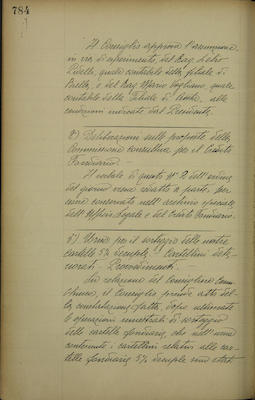 784
Il Consiglio approva l'assunzione
in via di esperimento, del Rag. Pietro
quale contabile della filiale di
Biella, e del Rag. Mario quale
contabile della Filiale di Aosta, alle
condizioni indicate dal Presidente.
2°) Deliberazioni sulle proposte della
Commissione consultiva per il Credito
Fondiario.
Il verbale di questo N° 2 dell'ordine
del giorno viene redatto a parte per
essere conservato nell'archivio speciale
dell'Ufficio Legale e del Credito Fondiario.
3°) Urna per il sorteggio delle nostre
cartelle 5% Semplici - Cartellini dete-
riorati - Provvedimenti.
Su relazione del Consigliere Com-
il Consiglio prende atto del-
la constatazione fatta, dopo ultimate
le operazioni semestrali di sorteggio
delle cartelle fondiarie, che nell'urna
contenente i cartellini relativi alle car-
telle fondiarie 5% Semplici sono stati